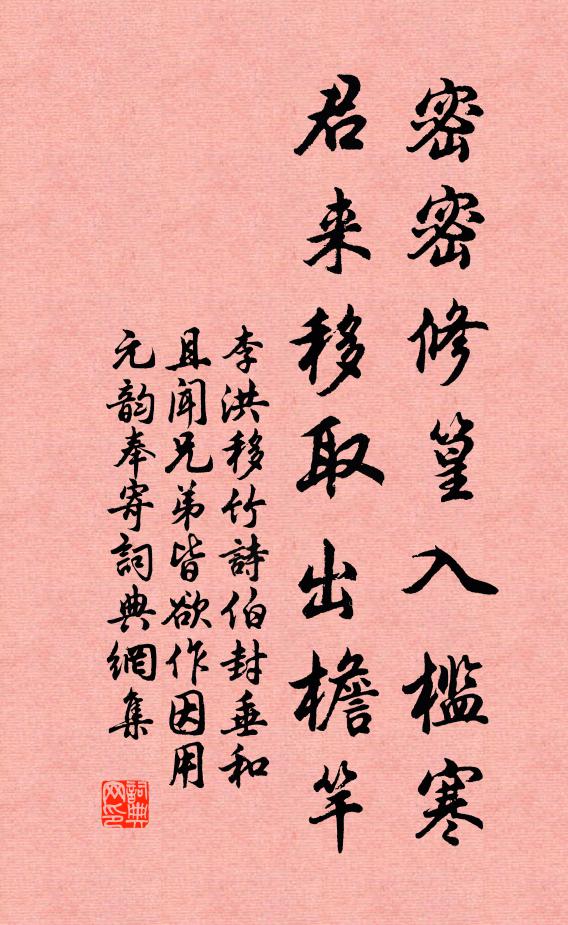 密密修篁入槛寒
君来移取出檐竿
李洪移竹詩伯封垂和
且闻兄弟皆欲作因用
元韵奉寄詞典網集
詞典网印